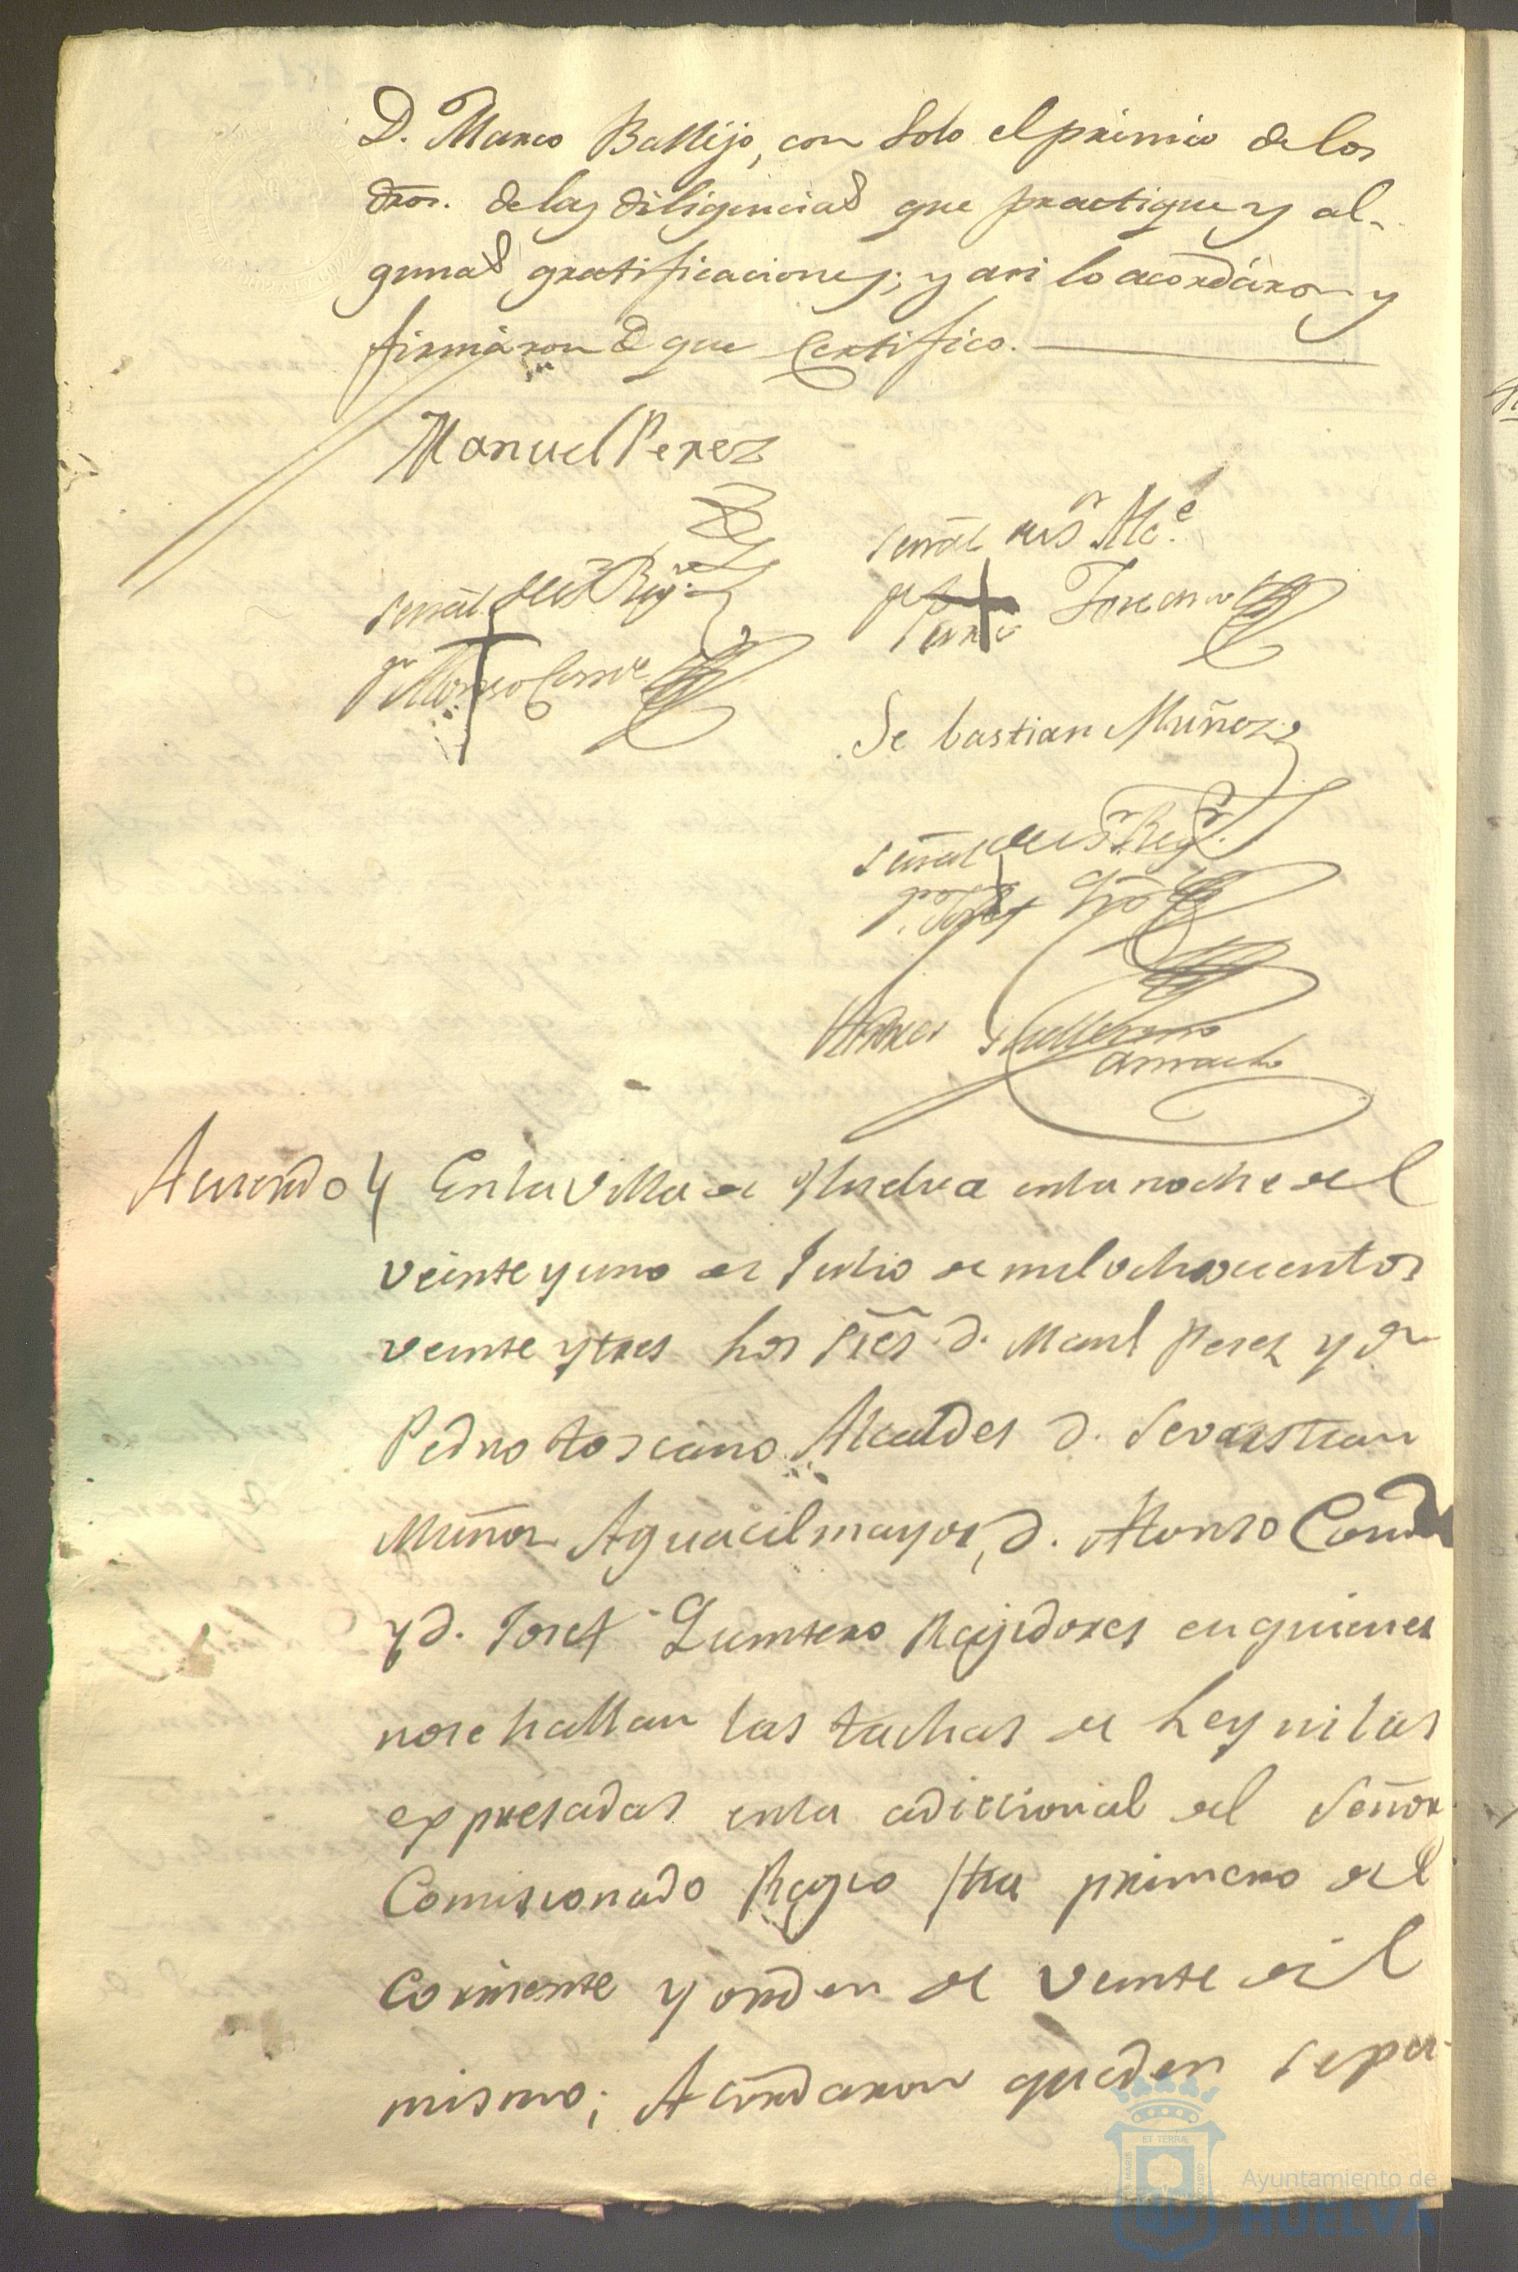 D. Marco Ballijo, con solo el primio de los
dros. de las diligencias que practique y al-
gunas gratificaciones; y asi lo acordáron y
firmáron de que Certifico.
Manuel Perez
señal del Sor Alce
pr Pedro Toscano
señal del Sor Regr
pr Alonso Conde
Sebastian Muñoz
señal del Sor Regr
pr Josef Qro
Guillermo
Camacho
Acuerdo
En la Villa de Huelva en la noche del
veinte y uno de Julio de mil ochocientos
veinte y tres los Sres D. Manl Perez y Dn
Pedro Toscano Alcaldes D. Sevastian
Muñoz Aguacil mayor, D. Alonso Conde
y D. Josef Quintero Rejidores en quienes
no se hallan las tachas de Ley ni las
expresadas en la adiccional del Señor
Comisionado Regio fha primero del
corriente y orden de veinte del
mismo; Acordaron queden sepa-
ET TERRAE
Ayuntamiento de
HUELVA